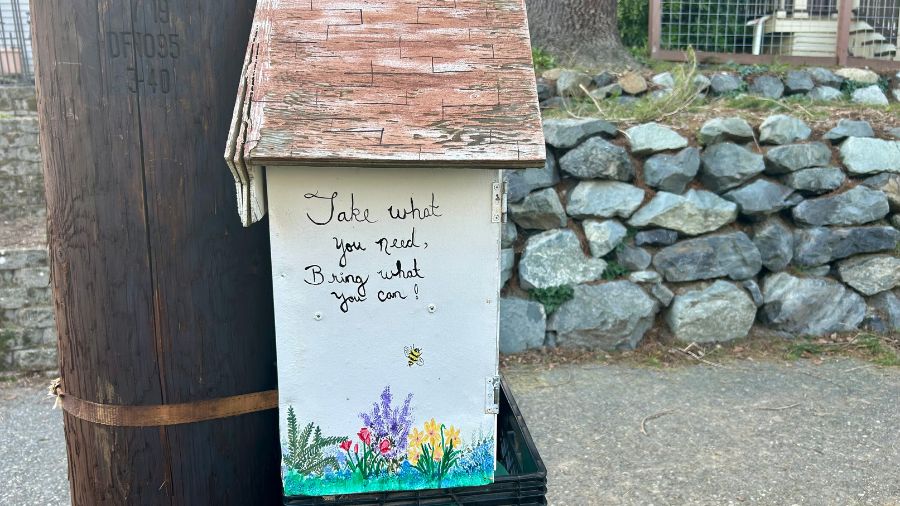 DF 1095
3-40
Take what
you need,
Bring what
you can!